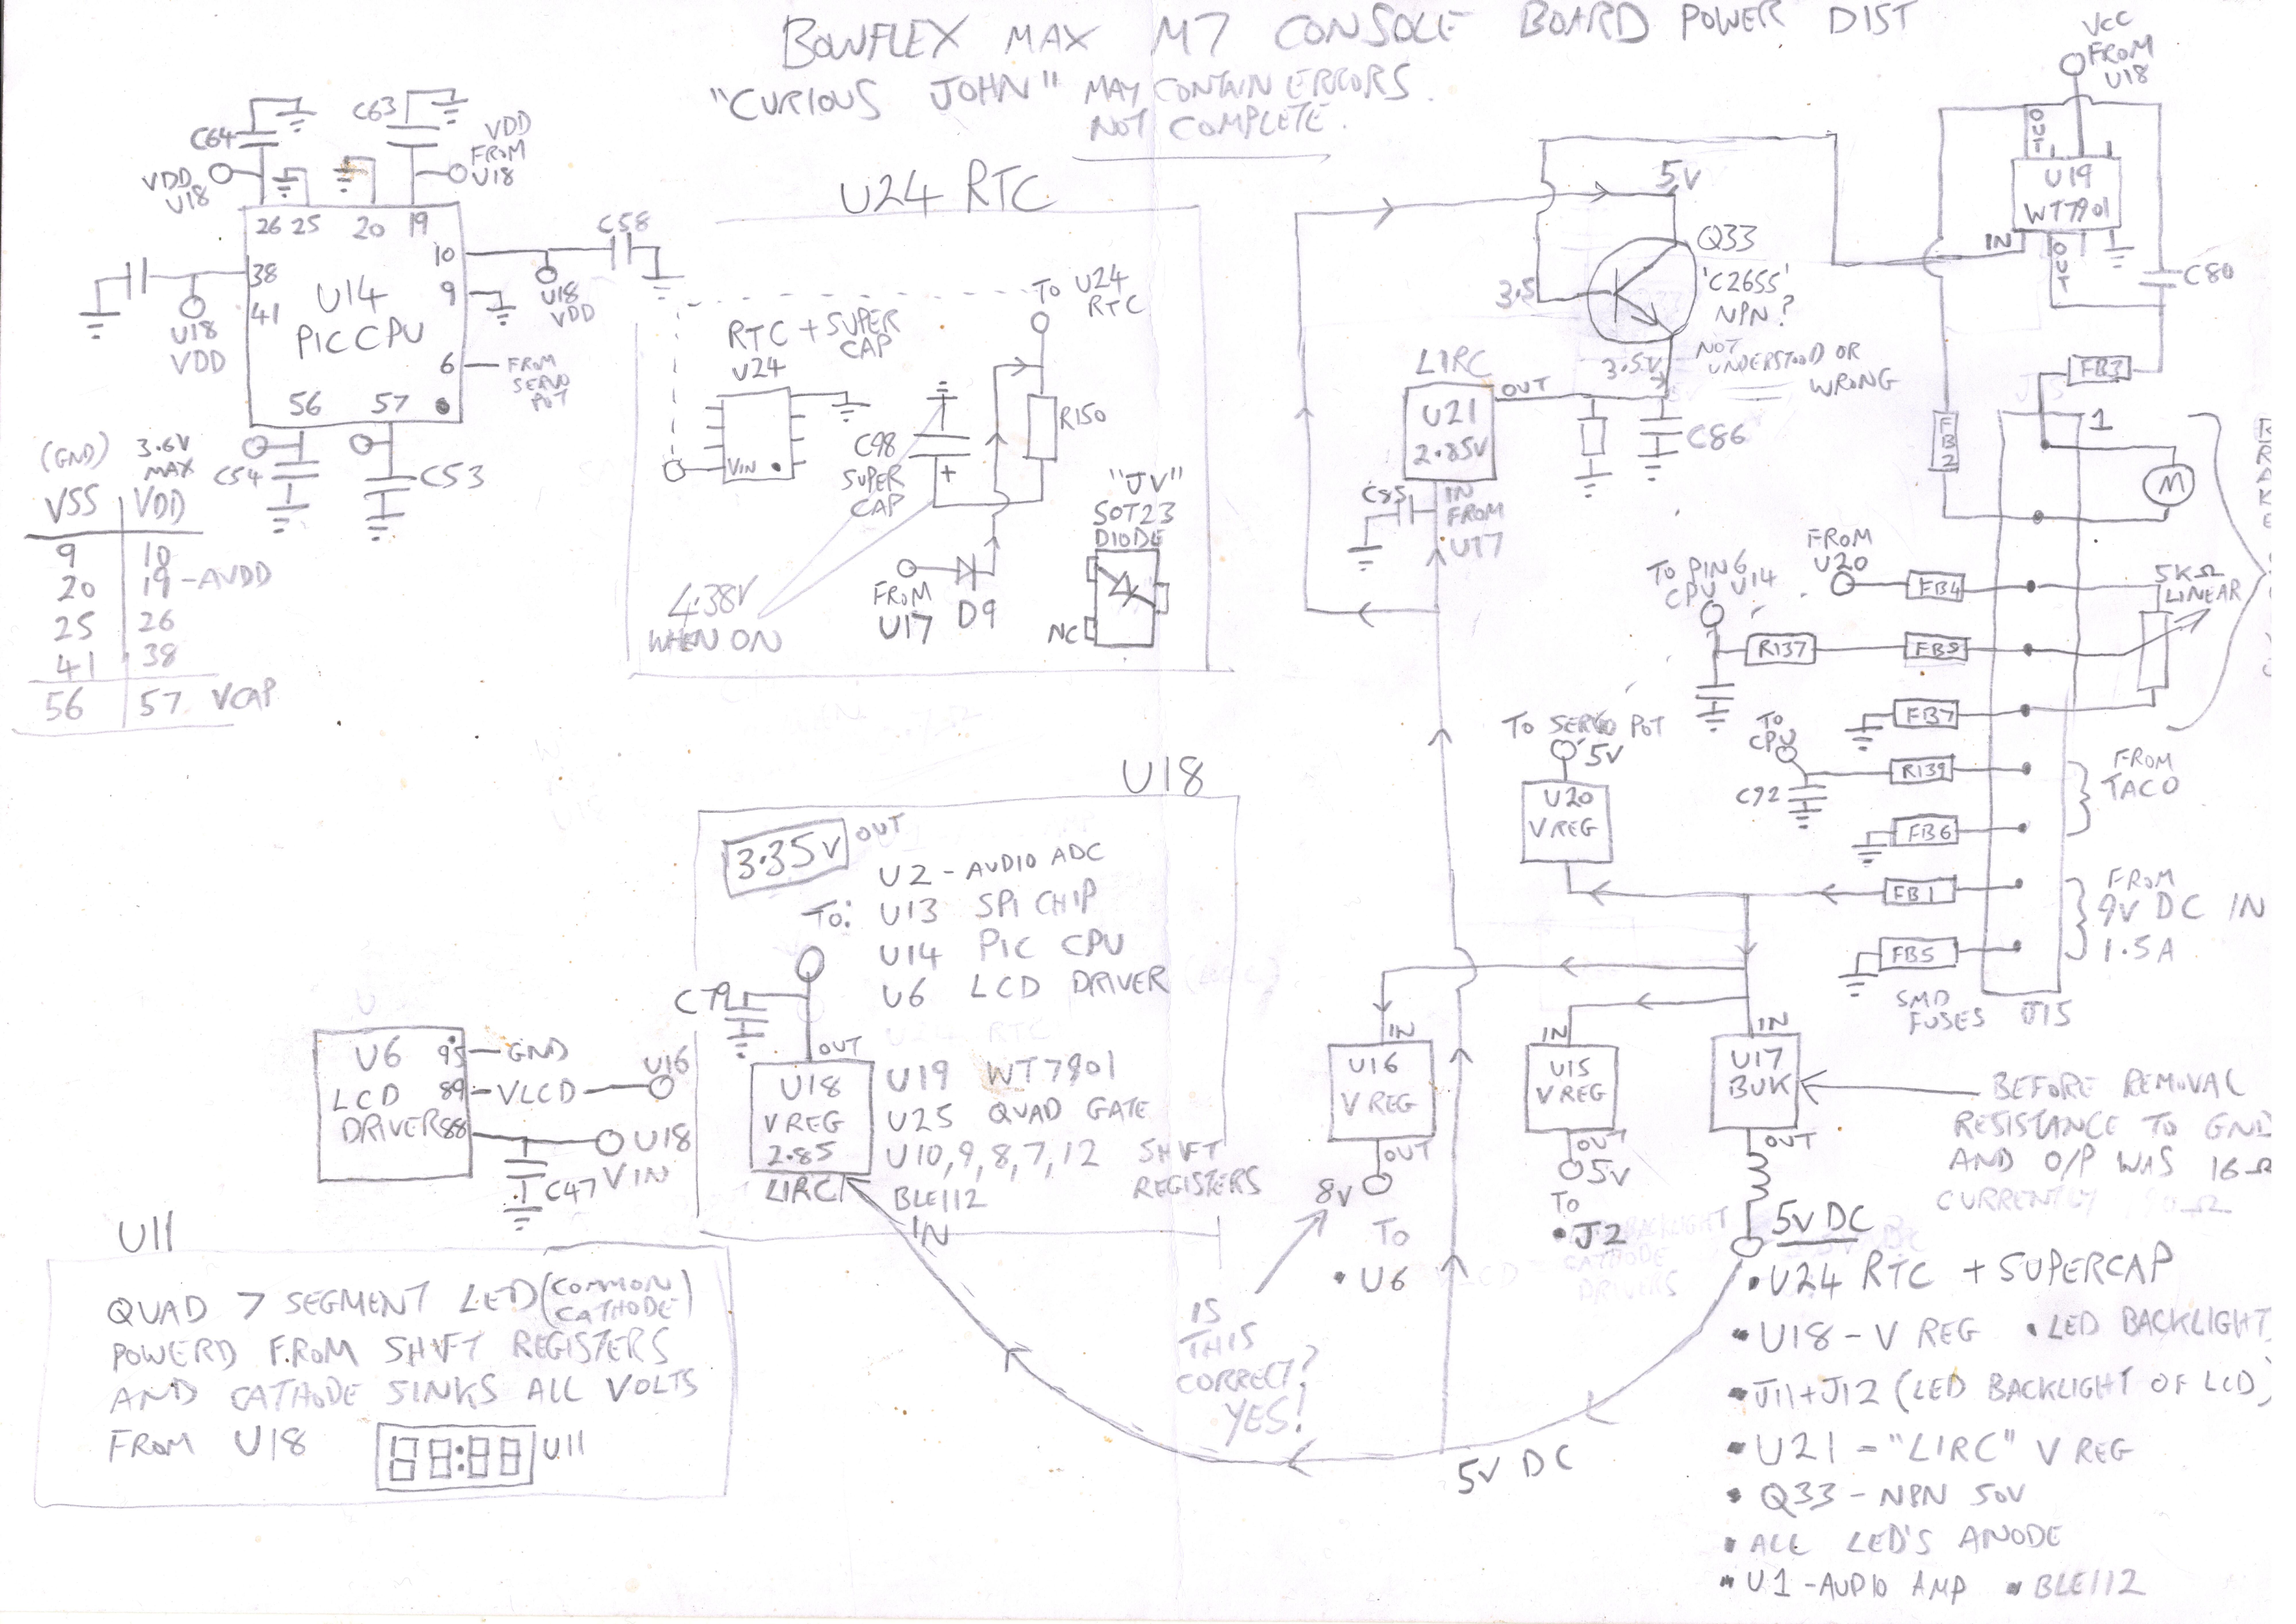 BOWFLEX MAX M7 CONSOLE BOARD POWER DIST
"CURIOUS JOHN" MAY CONTAIN ERRORS.
NOT COMPLETE.
C64
C63
VDD
FROM
U18
VDD
U18
26 25 20 19
10
38
9
41
U14
PIC CPU
6
56 57
C58
U18
VDD
U18
VDD
FROM
SERVO
POT
C54
C53
(GND) 3.6V
MAX
VSS VDD
9 10
20 19 - AVDD
25 26
41 38
56 57 VCAP
U24 RTC
TO U24
RTC
RTC + SUPER
CAP
U24
VIN
C98
SUPER
CAP
+
R150
"JV"
SOT23
DIODE
NC
FROM
U17
D9
4.38V
WHEN ON
5V
Q33
'C2655'
NPN?
NOT
UNDERSTOOD OR
WRONG
3.5
3.5V
LIRC
U21
2.85V
OUT
C86
C85
IN
FROM
U17
VCC
FROM
U18
OUT
U19
WT7901
IN
OUT
C80
FB3
FB2
1
M
FROM
U20
FB4
5KΩ
LINEAR
TO PIN 6
CPU U14
R137
FB8
FB7
TO
CPU
R139
C92
FB6
FROM
TACO
FB1
FROM
9V DC IN
1.5A
FB5
SMD
FUSES
J15
TO SERVO POT
5V
U20
V REG
U18
3.35V OUT
TO:
U2 - AUDIO ADC
U13 SPI CHIP
U14 PIC CPU
U6 LCD DRIVER
C79
OUT
U18
V REG
2.85
LIRC
U19 WT7901
U25 QUAD GATE
U10,9,8,7,12 SHIFT
REGISTERS
BLE112
IN
U6
LCD
DRIVER
95 GND
89 VLCD
88
U16
U18
VIN
C47
IN
U16
V REG
OUT
8V
TO
• U6
IS
THIS
CORRECT?
YES!
IN
U15
V REG
OUT
5V
TO
• J2
IN
U17
BUK
OUT
BEFORE REMOVAL
RESISTANCE TO GND
AND O/P WAS 16Ω
CURRENTLY
5V DC
• U24 RTC + SUPERCAP
• U18 - V REG • LED BACKLIGHT
• J11 + J12 (LED BACKLIGHT OF LCD)
• U21 - "LIRC" V REG
• Q33 - NPN 50V
• ALL LED'S ANODE
• U1 - AUDIO AMP • BLE112
5V DC
U11
QUAD 7 SEGMENT LED (COMMON
CATHODE)
POWERD FROM SHIFT REGISTERS
AND CATHODE SINKS ALL VOLTS
FROM U18
U11